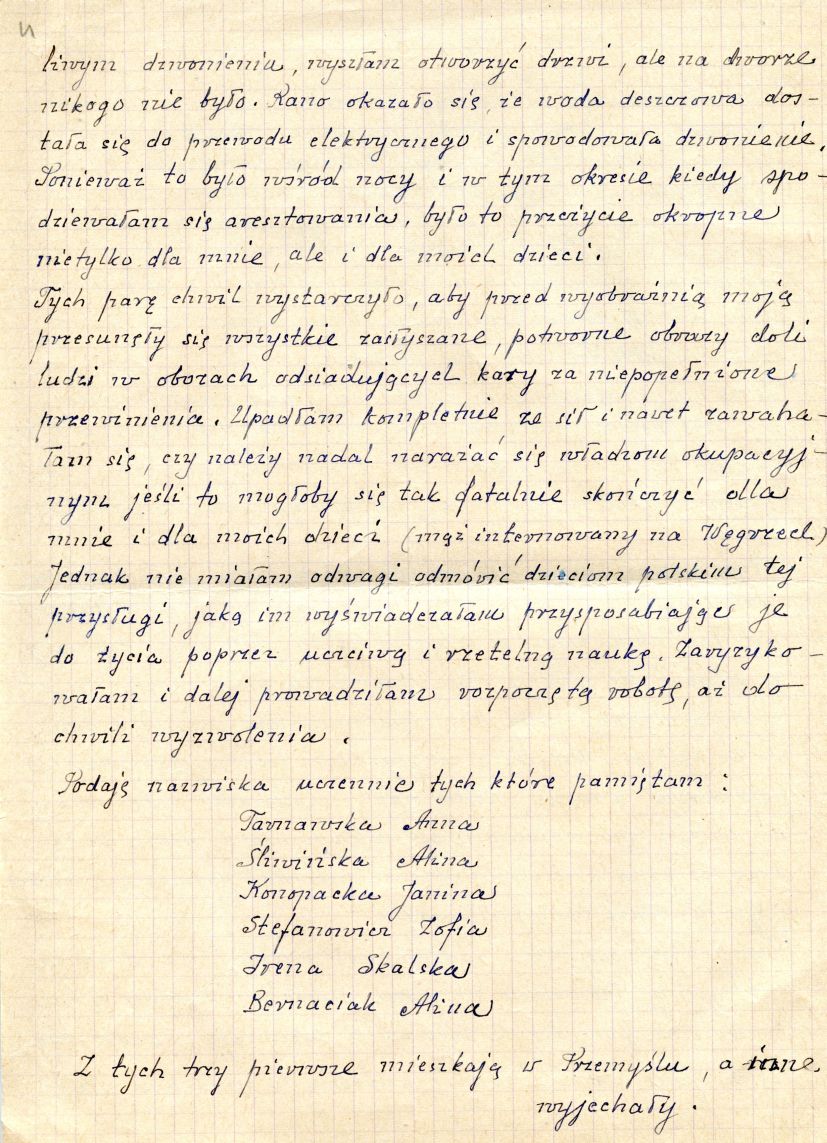 4
liwym dzwonieniu, wyszłam otworzyć drzwi, ale na dworze
nikogo nie było. Rano okazało się, że woda deszczowa dos-
tała się do przewodu elektrycznego i spowodowała dzwonienie.
Ponieważ to było wśród nocy i w tym okresie kiedy spo-
dziewałam się aresztowania, było to przeżycie okropne
nietylko dla mnie, ale i dla moich dzieci.
Tych parę chwil wystarczyło, aby przed wyobraźnią moją
przesunęły się wszystkie zasłyszane, potworne obrazy doli
ludzi w obozach odsiadujących kary za niepopełnione
przewinienia. Upadłam kompletnie ze sił i nawet zawaha-
łam się, czy należy nadal narażać się władzom okupacyj-
nym jeśli to mogłoby się tak fatalnie skończyć dla
mnie i dla moich dzieci (mąż internowany na Węgrzech)
Jednak nie miałam odwagi odmówić dzieciom polskim tej
przysługi, jaką im wyświadczałam przysposabiając je
do życia poprzez uczciwą i rzetelną naukę. Zaryzyko-
wałam i dalej prowadziłam rozpoczętą robotę, aż do
chwili wyzwolenia.
Podaję nazwiska uczennic tych które pamiętam :
Tarnawska Anna
Śliwińska Alina
Konopacka Janina
Stefanowicz Zofia
Irena Skalska
Bernaciak Alina
Z tych trzy pierwsze mieszkają w Przemyślu, a inne
wyjechały.